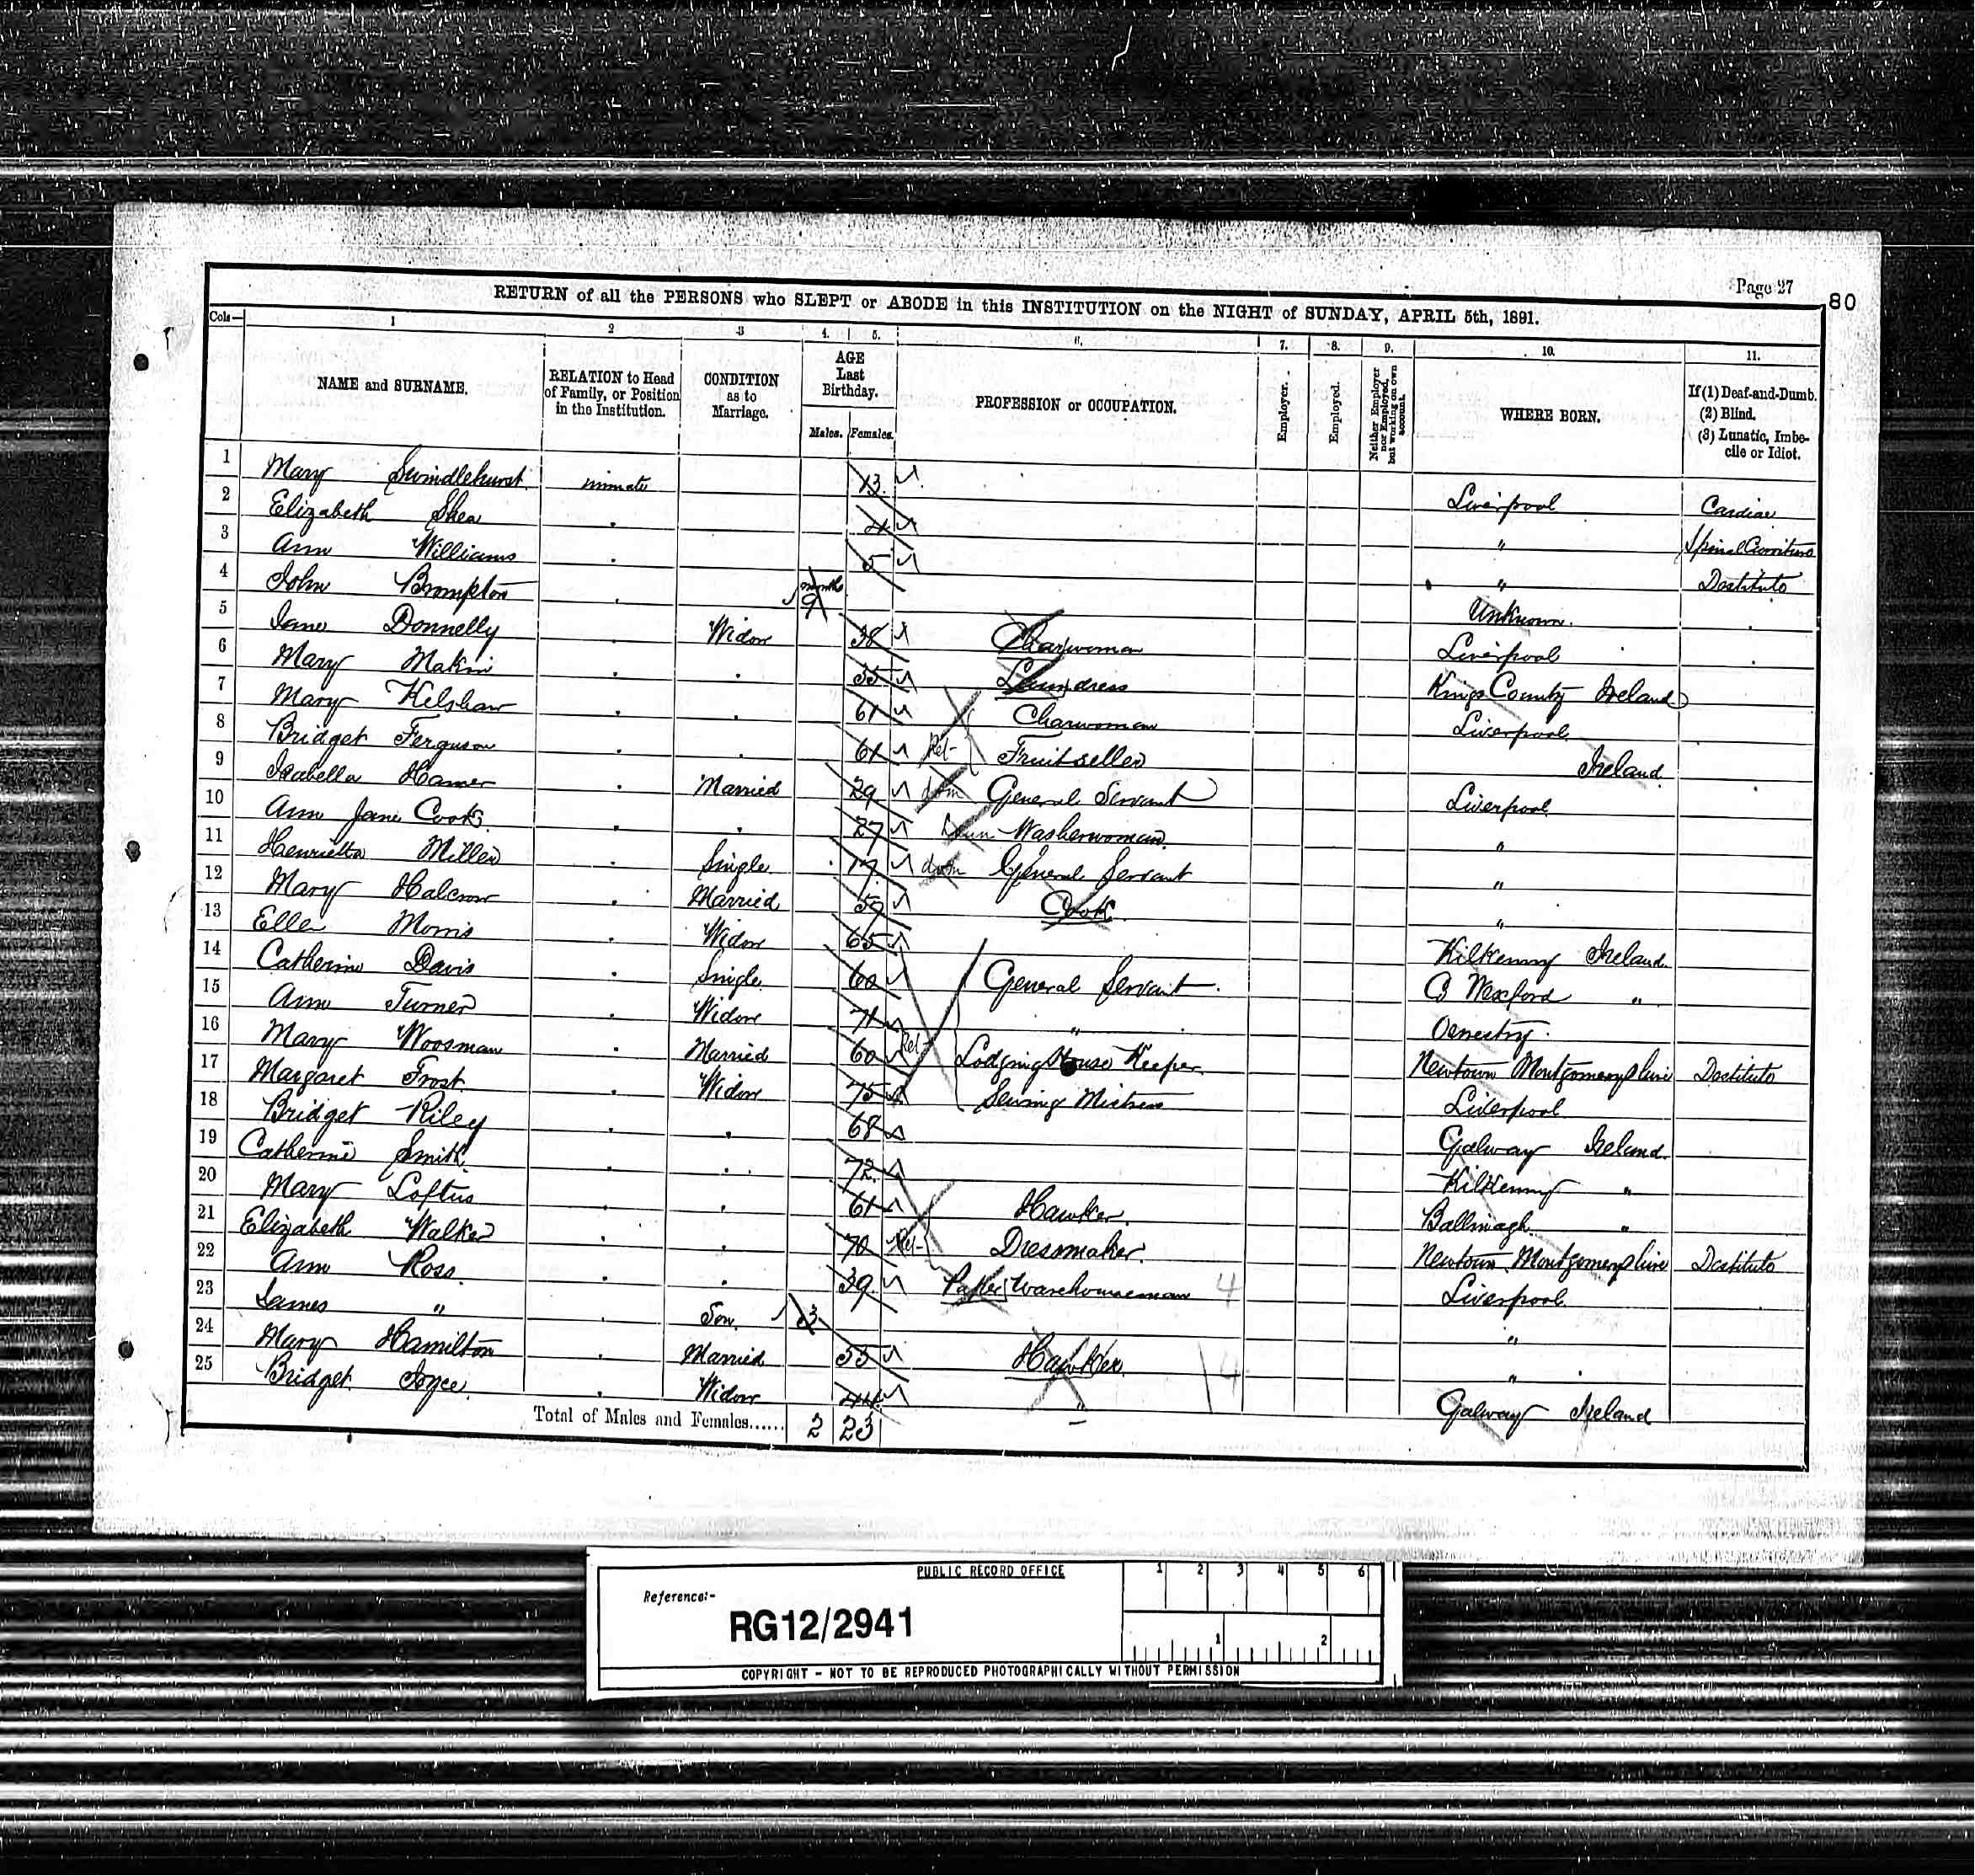 Page 27
80
RETURN of all the PERSONS who SLEPT or ABODE in this INSTITUTION on the NIGHT of SUNDAY, APRIL 5th, 1891.
Cols— 1 2 3 4. 5. 6. 7. 8. 9. 10. 11.
NAME and SURNAME. RELATION to Head of Family, or Position in the Institution. CONDITION as to Marriage. AGE Last Birthday. Males. Females. PROFESSION or OCCUPATION. Employer. Employed. Neither Employer nor Employed, but working on own account. WHERE BORN. If (1) Deaf-and-Dumb. (2) Blind. (3) Lunatic, Imbecile or Idiot.
1 Mary Swindlehurst inmate 13 Liverpool Cardiac
2 Elizabeth Shea " 4 " Spinal
3 Ann Williams " 5 " Destitute
4 John Brompton " months 9 Unknown "
5 Jane Donnelly " Widow 38 Charwoman Liverpool "
6 Mary Makin " " 55 Laundress Kings County Ireland
7 Mary Kelshaw " " 61 Charwoman Liverpool
8 Bridget Ferguson " " 61 Ret- Fruitseller Ireland
9 Isabella Hamer " Married 29 dom General Servant Liverpool
10 Ann Jane Cook " " 27 Washerwoman "
11 Henrietta Miller " Single 17 dom General Servant "
12 Mary Halcrow " Married 59 Cook "
13 Ellen Morris " Widow 65 Kilkenny Ireland
14 Catherine Davis " Single 60 General Servant Co Wexford "
15 Ann Turner " Widow 71 " Oswestry
16 Mary Woosman " Married 60 Ret- Lodging House Keeper Newtown Montgomeryshire Destitute
17 Margaret Frost " Widow 75 Sewing Mistress Liverpool
18 Bridget Riley " " 68 Galway Ireland
19 Catherine Smith " " 72 Kilkenny "
20 Mary Loftus " " 61 Hawker Ballinagh "
21 Elizabeth Walker " " 70 Ret- Dressmaker Newtown Montgomeryshire Destitute
22 Ann Ross " " 39 Paper Warehousewoman 4 Liverpool
23 James " " Son 3 "
24 Mary Hamilton " Married 55 Hawker 4 "
25 Bridget Joyce " Widow 44 " Galway Ireland
Total of Males and Females...... 2 23
PUBLIC RECORD OFFICE
1 2 3 4 5 6
Reference:-
RG12/2941
1 2
COPYRIGHT - NOT TO BE REPRODUCED PHOTOGRAPHICALLY WITHOUT PERMISSION